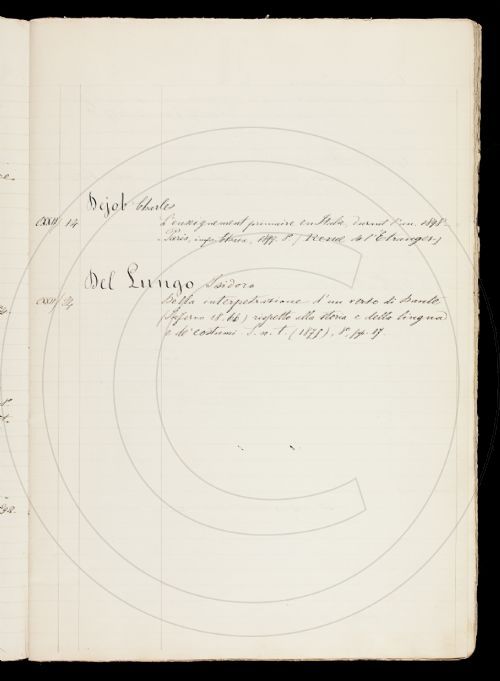 Dejob Charles
CXXII 14 L'enseignement primaire en Italie, durant l'an. 1898
Paris, imp. 1899. 8°. (Revue de l'Etranger)
Del Lungo Isidoro
CXXII 24 Della interpetrazione d'un verso di Dante
(Inferno 18. 66) rispetto alla storia e della lingua
e de' costumi. S. n. t. (1875), 8°, pp. 17.